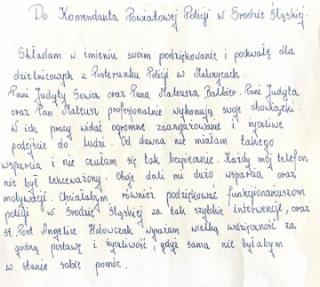 Do Komendanta Powiatowej Policji w Środzie Śląskiej.
Składam w imieniu swoim podziękowanie i pochwałę dla
dzielnicowych z Posterunku Policji w Malczycach.
Pani Judyty Sowa oraz Pana Mateusza. Pani Judyta
oraz Pan Mateusz profesjonalnie wykonują swoje obowiązki.
W ich pracy widać ogromne zaangażowanie i życzliwe
podejście do ludzi. Od dawna nie miałam takiego
wsparcia i nie czułam się tak bezpiecznie. Każdy mój telefon
nie był lekceważony. Oboje dali mi dużo wsparcia oraz
motywacji. Chciałabym również podziękować funkcjonariuszom
policji w Środzie Śląskiej za tak szybkie interwencje, oraz
st. Post Angelice Hołowczak wyrażam wielką wdzięczność za
godną postawę i życzliwość, gdyż sama nie byłabym
w stanie sobie pomóc.